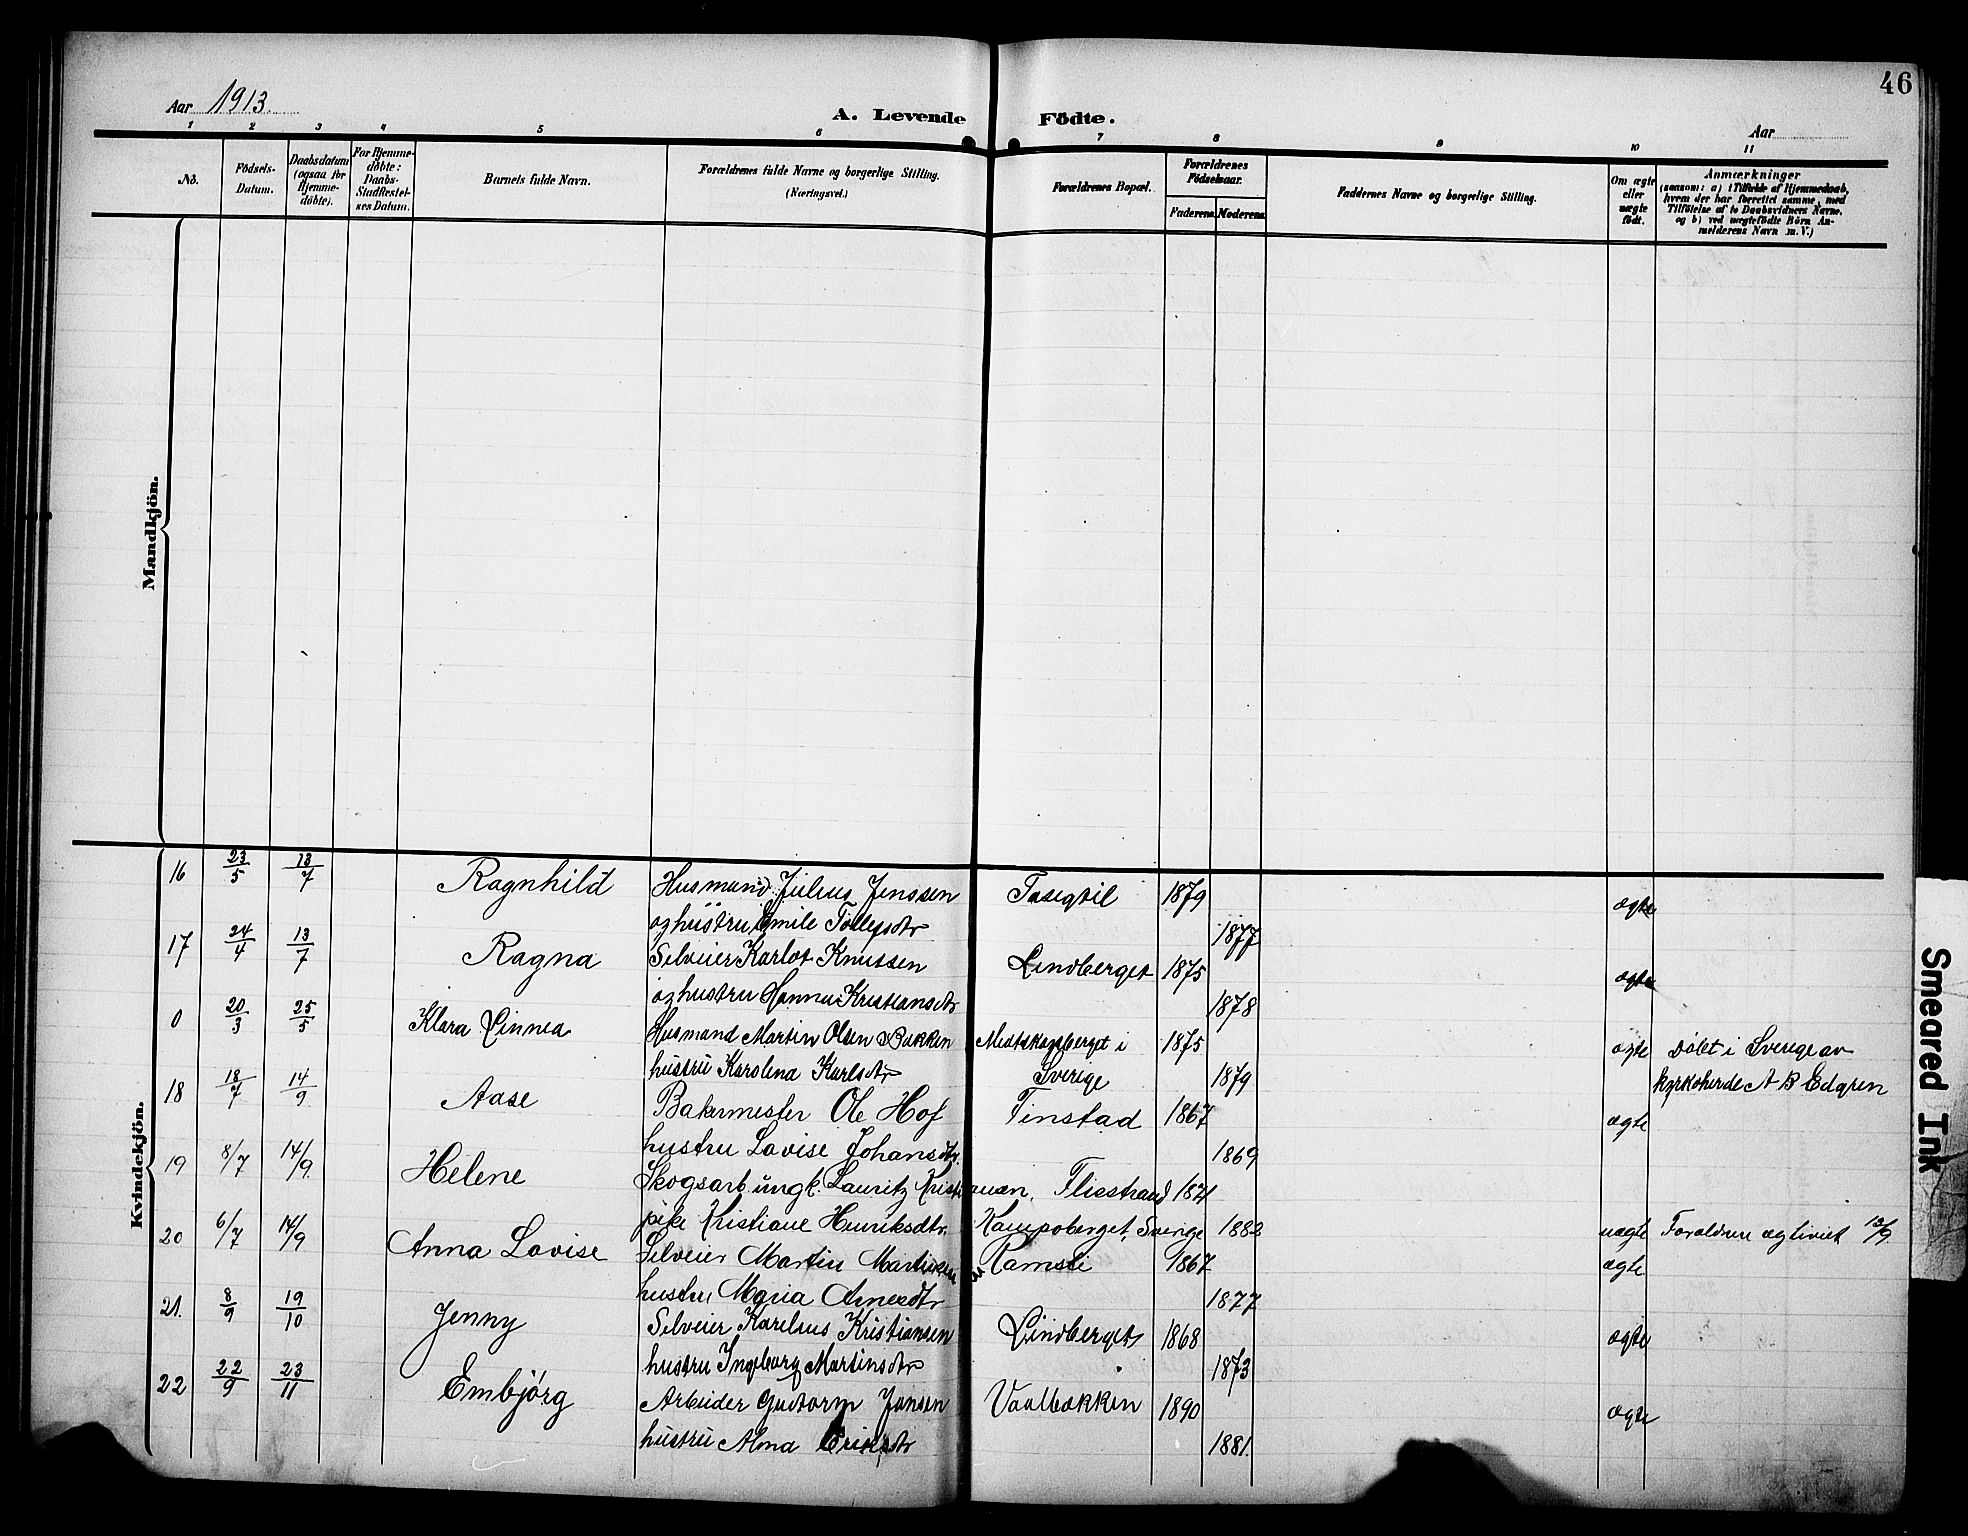 46
Aar 1913.
A. Levende Födte.
Aar
1 2 3 4 5 6 7 8 9 10 11
No.
Födsels-
Datum.
Daabsdatum
(ogsaa for
Hjemme-
döbte).
For Hjemme-
döbte:
Daabs-
Stadfæstel-
ses Datum.
Barnets fulde Navn.
Forældrenes fulde Navne og borgerlige Stilling.
(Næringsvei.)
Forældrenes Bopæl.
Forældrenes
Födselsaar.
Faderens. Moderens.
Faddernes Navne og borgerlige Stilling.
Om ægte
eller
uægte
födt.
Anmærkninger
(saasom: a) i Tilfælde af Hjemmedaab,
hvem der har forrettet samme, med
Tilföielse af to Daabsvidners Navne,
og b) ved uægtefödte Börn An-
melderens Navn m. V.)
Mandkjön.
Kvindekjön.
16 23/5 13/7 Ragnhild Husmand Julius Jenssen 1879 ægte
og hustru Emile 1877
17 24/4 13/7 Ragna Selveier Karlot Knutsen Lindberget 1875 ægte
og hustru Hanna Kristiansdtr 1878
0 20/3 25/5 Klara Linnea Husmand Martin Olsen Bakken i 1875 ægte Døbt i Sverige av
hustru Karolina Karlsdtr Sverige 1879 kyrkoherde A B Edgren
18 18/7 14/9 Aase Bakermester Ole Hof Finstad 1867 ægte
hustru Lovise Johansdtr. 1869
19 8/7 14/9. Helene Skogsarb. ungk. Lauritz Kristiansen, Fliestrand
pike Kristiane Henriksdtr. Kampoberget, Sverige 1882 uægte Forældrene ægteviet
20 6/7 14/9 Anna Lovise Selveier Martin Martinsen Ramsli 1867 ægte
hustru Maria Arnesdtr 1877
21. 8/9 19/10 Jenny Selveier Karelius Kristiansen Lindberget 1868 ægte
hustru Ingeborg Martinsdtr 1873
22 22/9 23/11 Embjörg Arbeider Guttorm Jansen Vaalbakken 1890 ægte
hustru Alma Eriksdtr 1881.
Smeared Ink